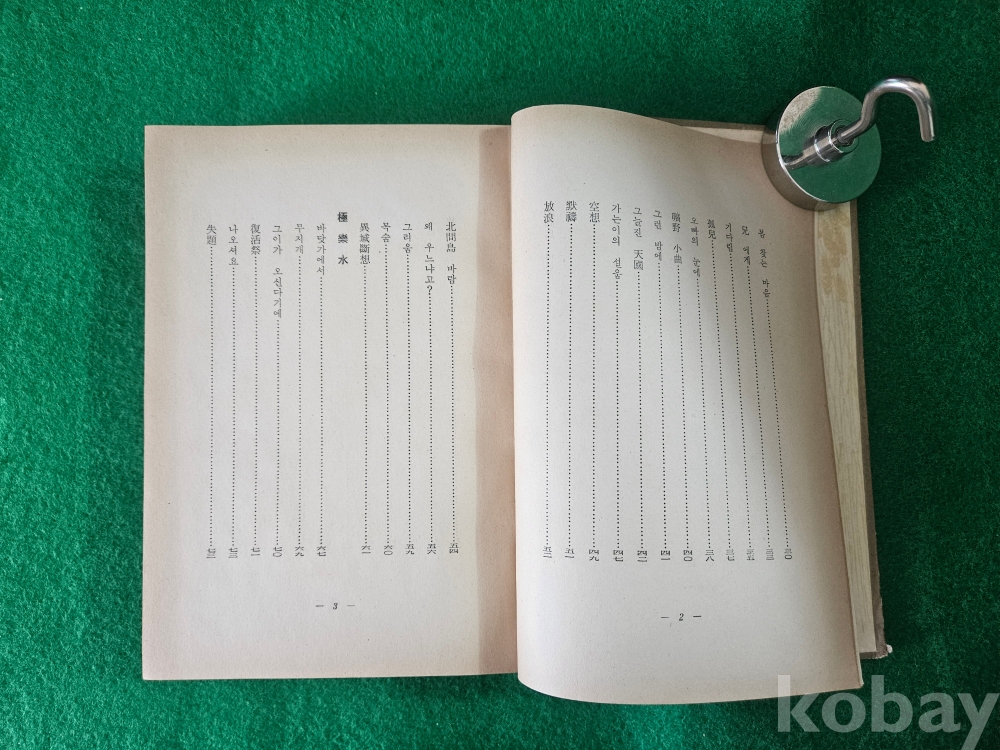 봄 찾는 마음……三〇
兄 에게……三三
기다림……三五
孤兒……三七
오빠의 눈에……三八
曠野 小曲……四〇
그런 밤에……四一
그늘진 天國……四二
가는이의 설움……四七
空想……四九
默禱……五一
放浪……五二
— 2 —
北間島 바람……五四
왜 우느냐고?……五六
그리움……五九
목숨……六〇
異域斷想……六一
極樂水
바닷가에서……六七
무지개……六九
그이가 오신다기에……七〇
復活祭……七一
나오서요……七二
失題……七三
— 3 —
kobay